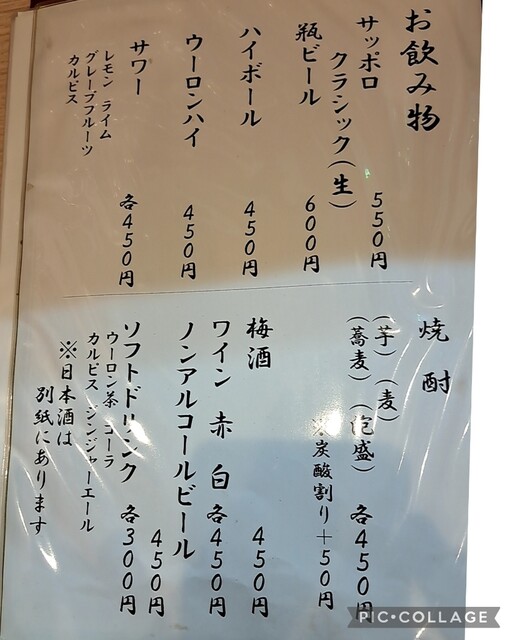 お飲み物
サッポロ
クラシック(生) 550円
瓶ビール 600円
ハイボール 450円
ウーロンハイ 450円
サワー 各450円
レモン ライム
グレープフルーツ
カルピス
焼酎
(芋)(麦)
(蕎麦)(泡盛) 各450円
※炭酸割り+50円
梅酒 450円
ワイン 赤 白 各450円
ノンアルコールビール 450円
ソフトドリンク 各300円
ウーロン茶 コーラ
カルピス ジンジャーエール
※日本酒は
別紙にあります
PIC•COLLAGE